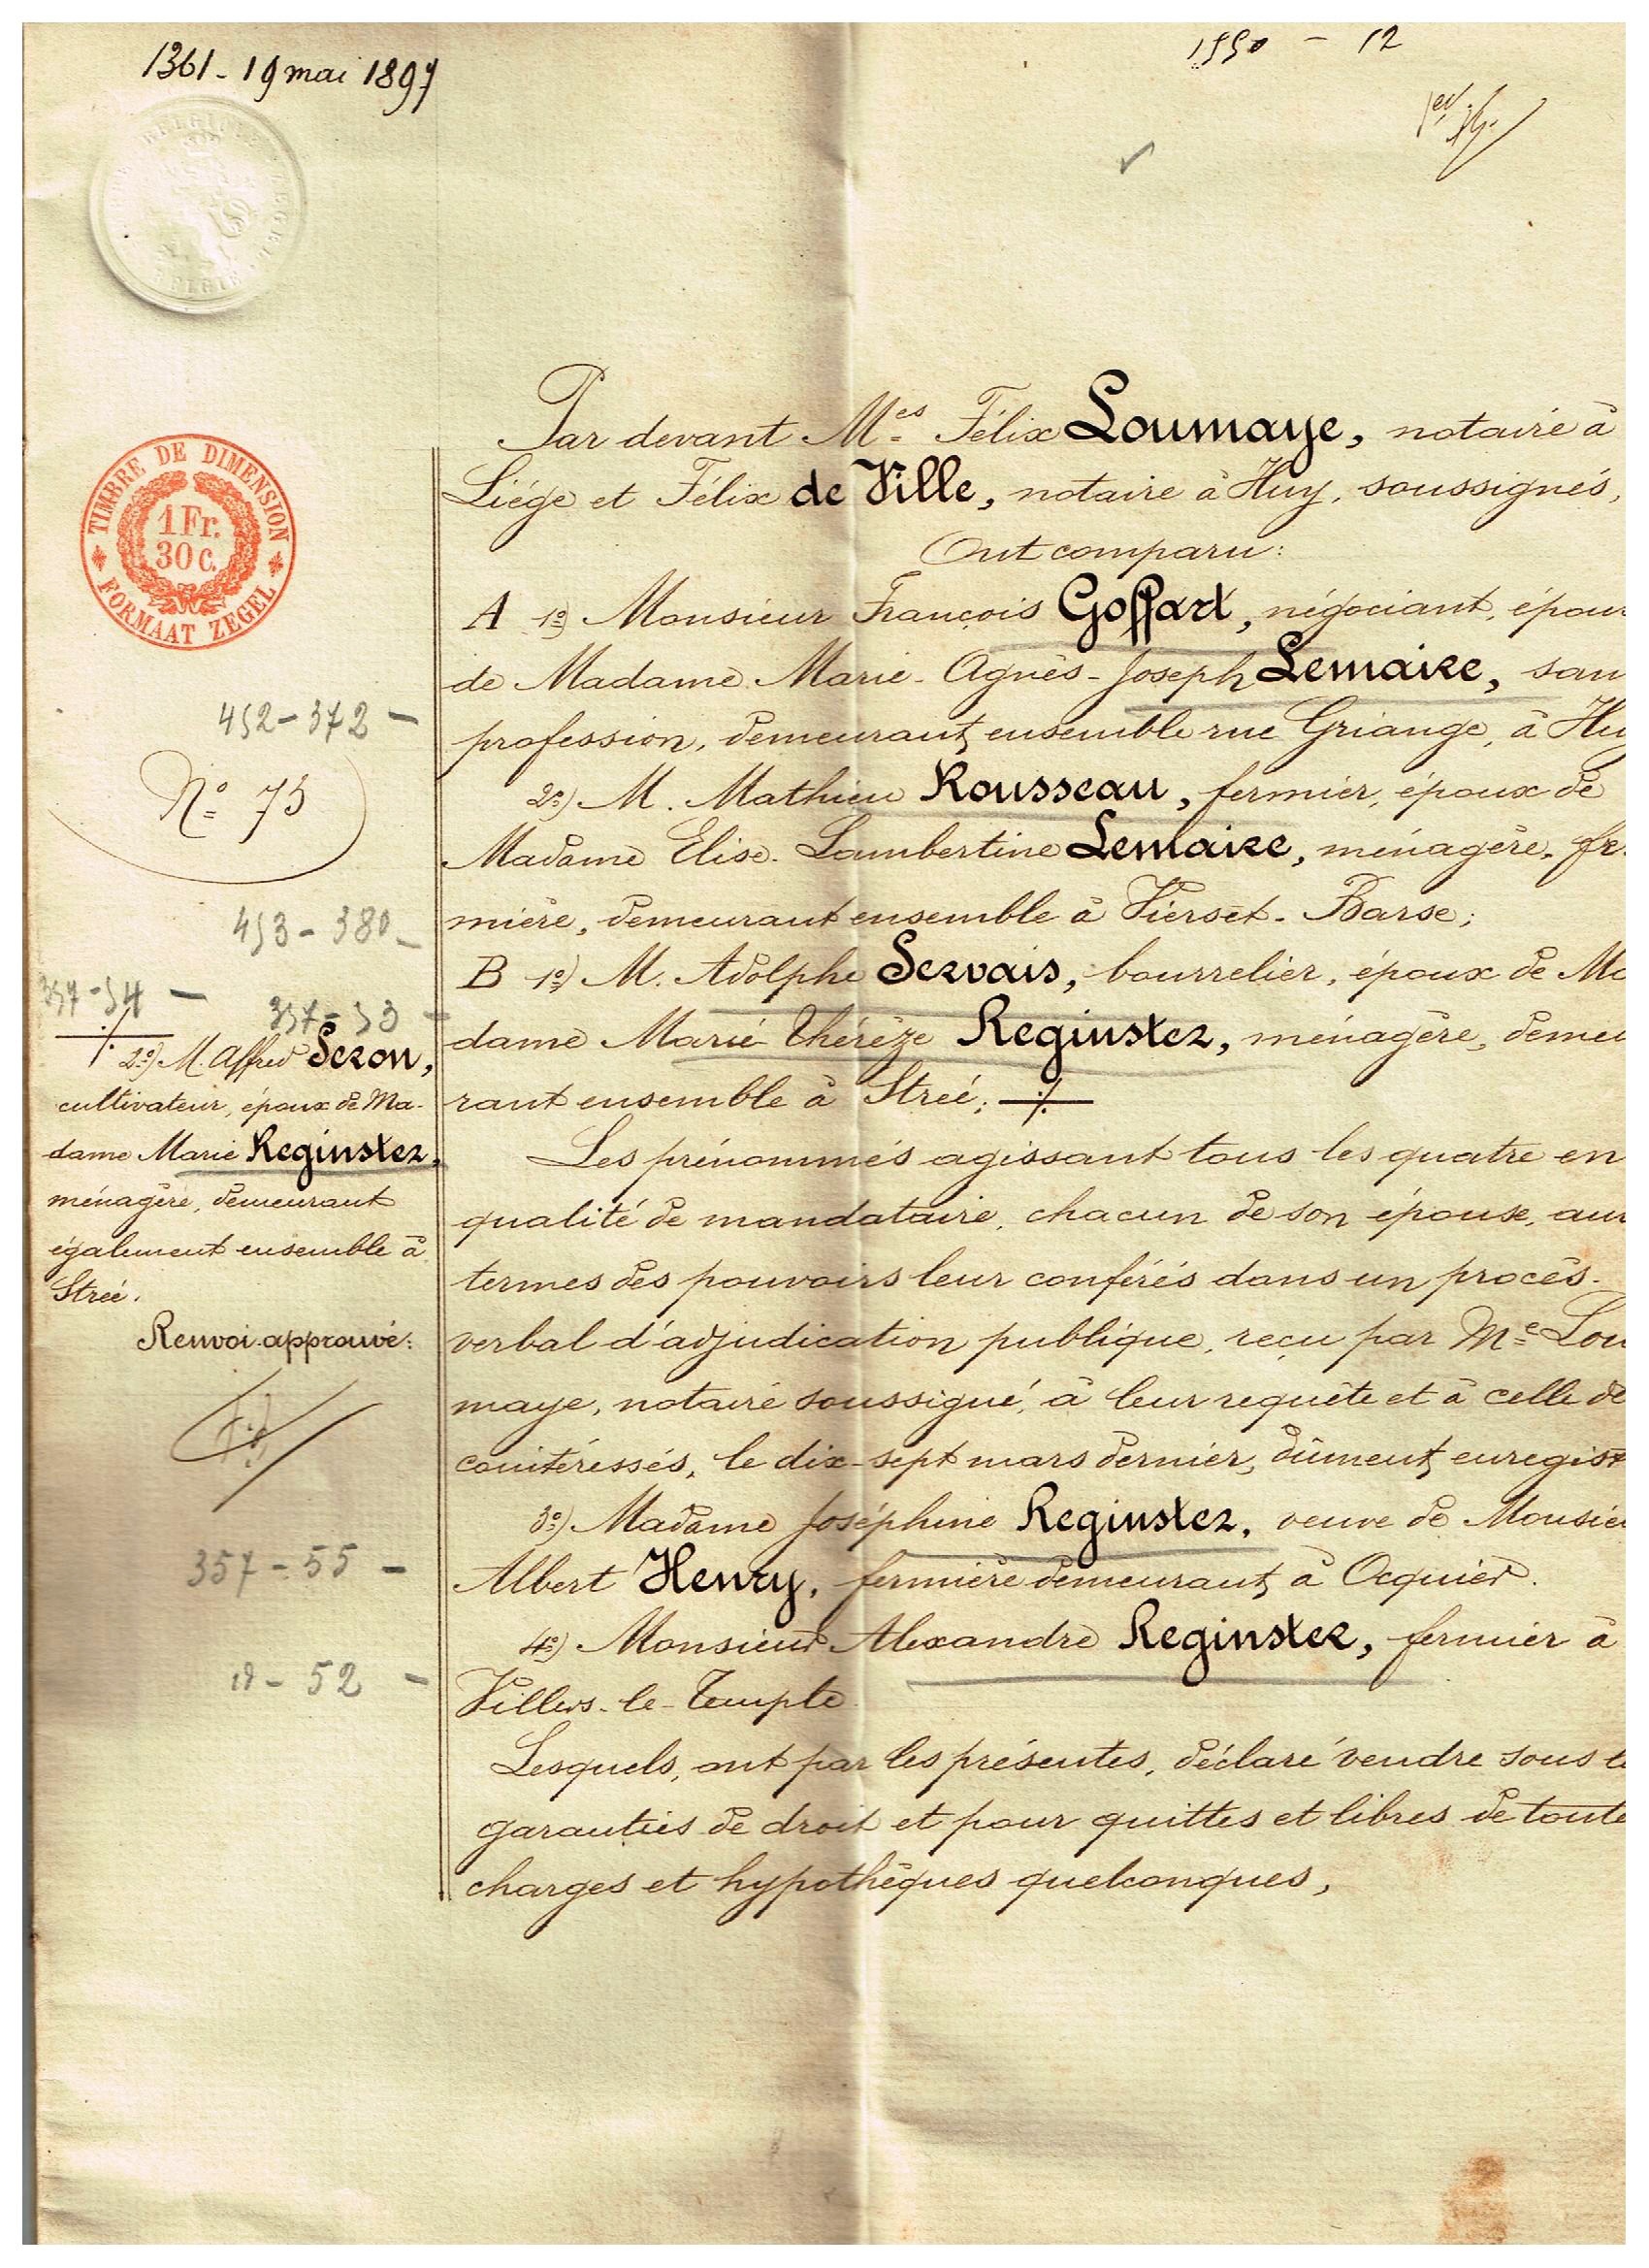 1361 - 19 mai 1897
1550 - 12
TIMBRE DE DIMENSION
1 Fr.
30 c.
FORMAAT ZEGEL
Par devant Mes Félix Loumaye, notaire à
Liége et Félix de Ville, notaire à Huy, soussignés,
Ont comparu:
A 1o) Monsieur François Goffart, négociant, épou
de Madame Marie-Agnès-Joseph Lemaire, san
profession, demeurant ensemble rue Griange, à Hu
2o) M. Mathieu Rousseau, fermier, époux de
Madame Elise-Lambertine Lemaire, ménagère, fr
mière, demeurant ensemble à Vierset-Barse;
B 1o) M. Adolphe Servais, bourrelier, époux de Ma
dame Marie Thérèze Reginster, ménagère, demeu
rant ensemble à Strée; ·/·
Les prénommés agissant tous les quatre en
qualité de mandataire, chacun de son épouse, aux
termes des pouvoirs leur conférés dans un procès-
verbal d'adjudication publique, reçu par Me Lou
maye, notaire soussigné, à leur requête et à celle de
cointéressés, le dix-sept mars dernier, dûment enregist
3o) Madame Joséphine Reginster, veuve de Monsieu
Albert Henry, fermière demeurant à Ocquier.
4o) Monsieur Alexandre Reginster, fermier à
Villers-le-Temple
Lesquels, ont par les présentes, déclaré vendre sous le
garanties de droit et pour quittes et libres de toute
charges et hypothèques quelconques,
452-372 -
No 75
453-380 -
357-54 -
357-53 -
·/· 2o) M. Alfred Seron,
cultivateur, époux de Ma-
dame Marie Reginster,
ménagère, demeurant
également ensemble à
Strée.
Renvoi approuvé:
357-55 -
id - 52 -